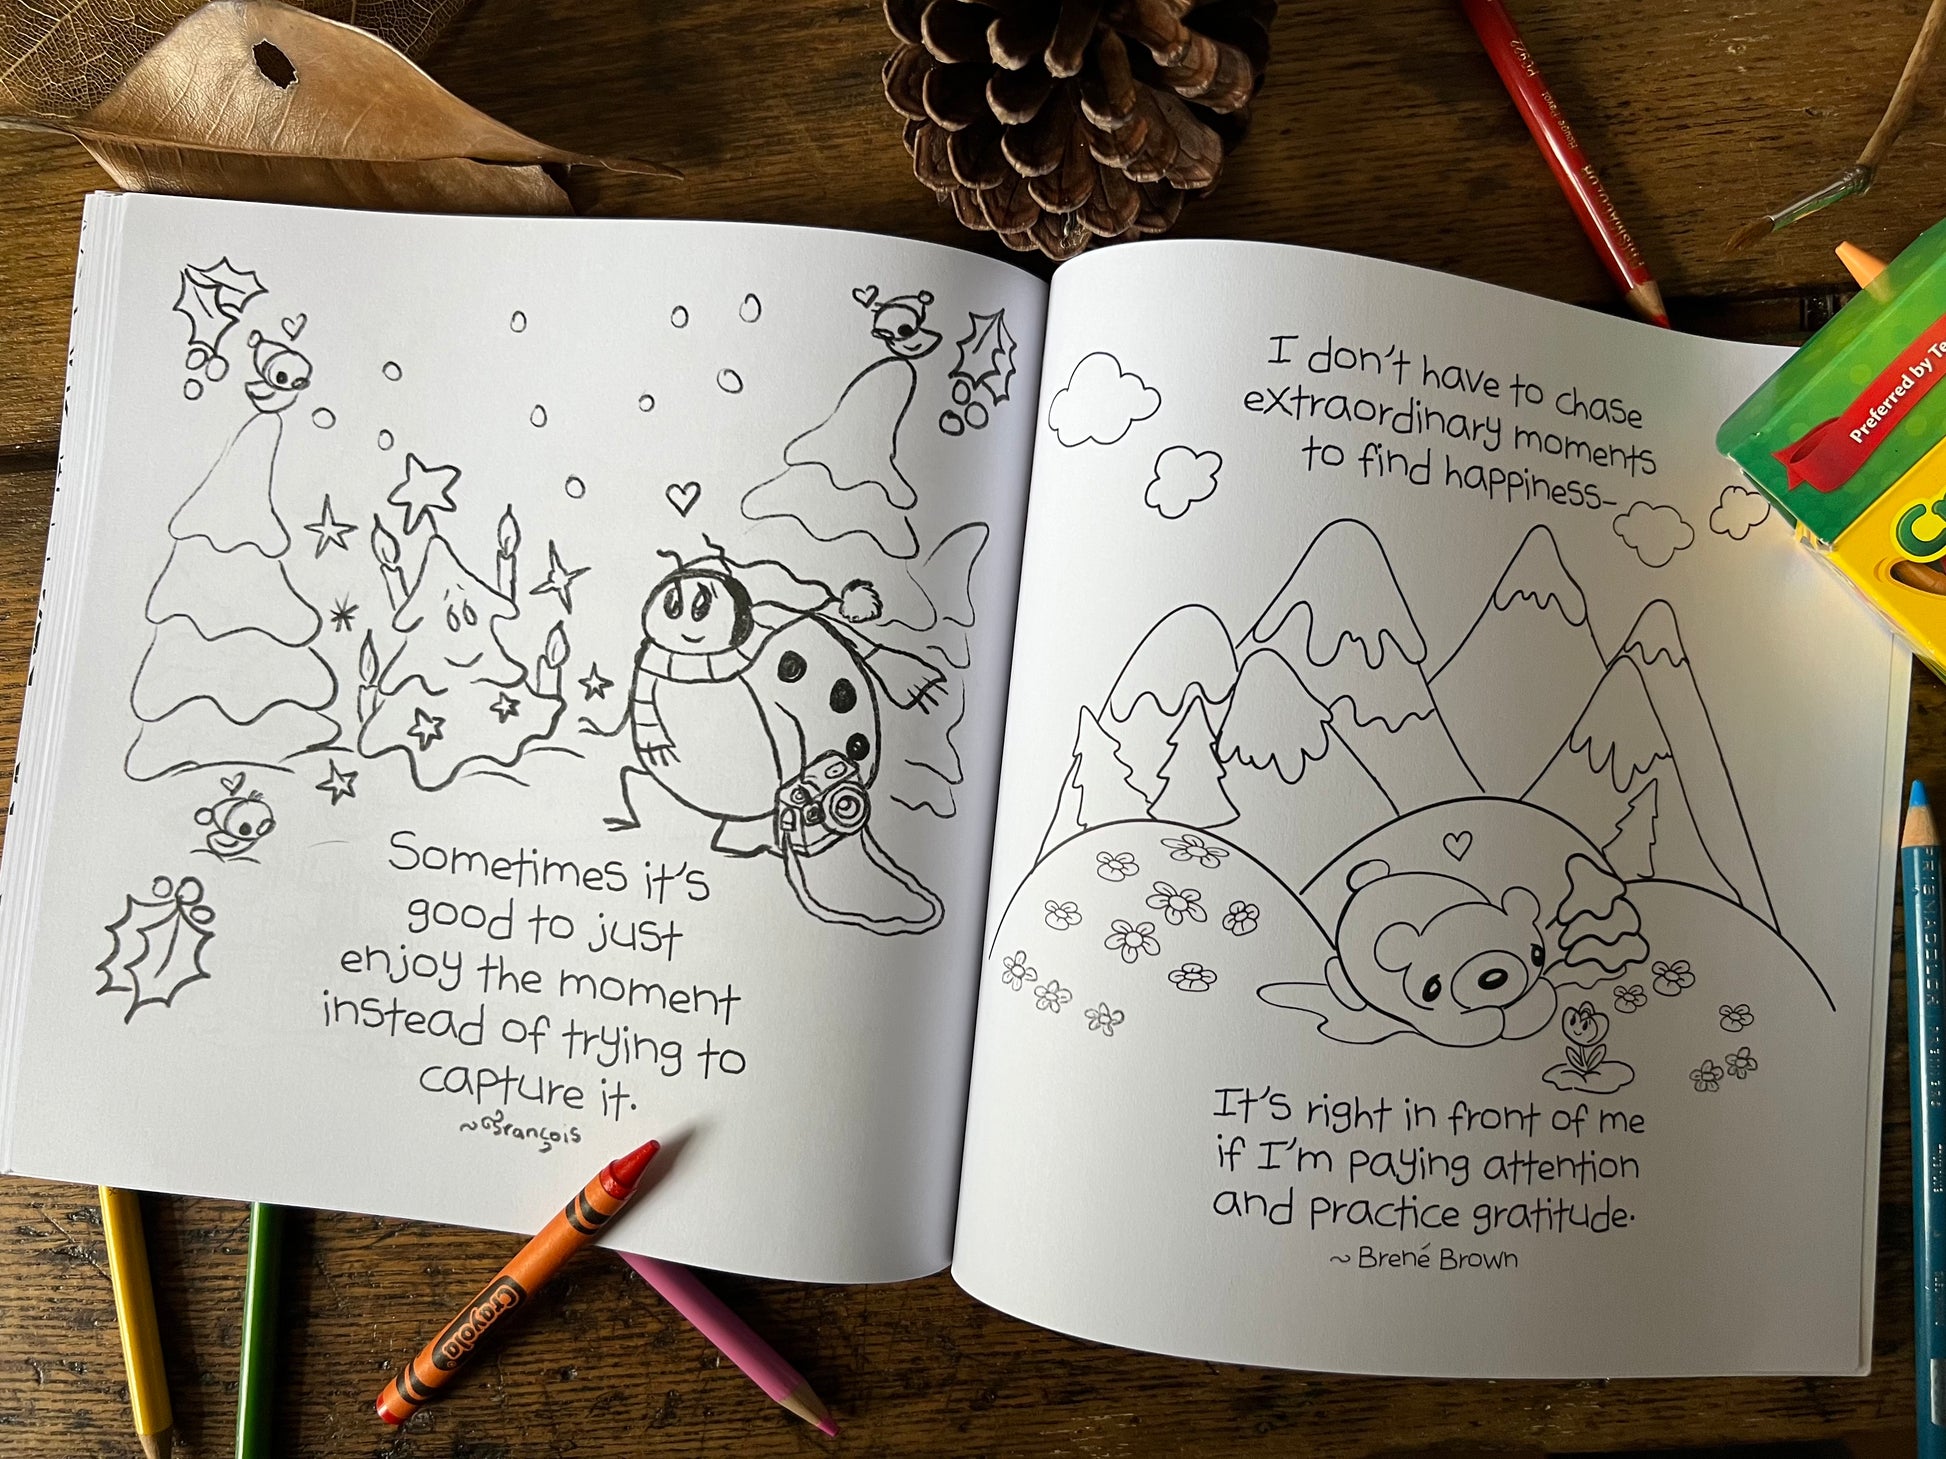 Sometimes it's
good to just
enjoy the moment
instead of trying to
capture it.
~François
I don't have to chase
extraordinary moments
to find happiness-
It's right in front of me
if I'm paying attention
and practice gratitude.
~ Brené Brown
Crayola
Preferred by Te
PRISMACOLOR